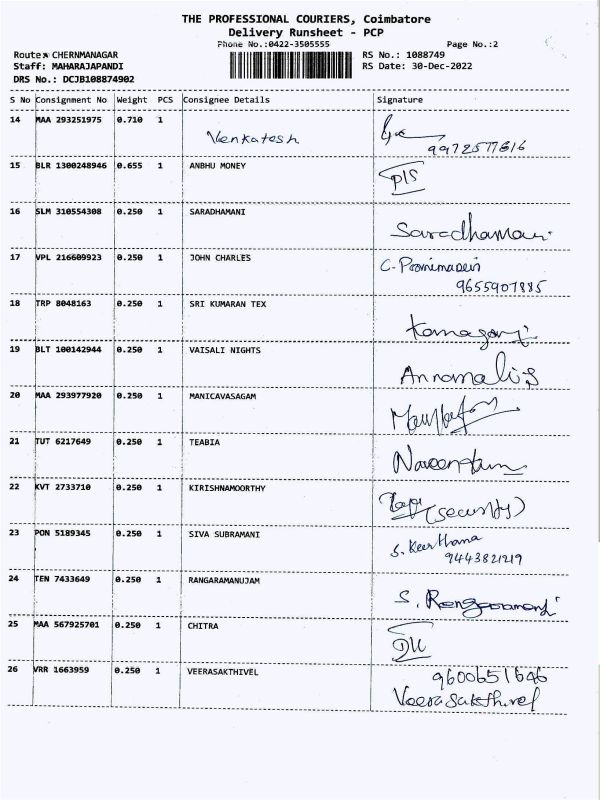 THE PROFESSIONAL COURIERS, Coimbatore
Delivery Runsheet - PCP
Phone No.:0422-3505555 Page No.:2
Route: CHERNMANAGAR RS No.: 1088749
Staff: MAHARAJAPANDI RS Date: 30-Dec-2022
DRS No.: DCJB108874902
S No Consignment No Weight PCS Consignee Details Signature
14 MAA 293251975 0.710 1 Venkatesh
9972577616
15 BLR 1300248946 0.655 1 ANBHU MONEY
16 SLM 310554308 0.250 1 SARADHAMANI
Saradhamani
17 VPL 216609923 0.250 1 JOHN CHARLES
9655907885
18 TRP 8048163 0.250 1 SRI KUMARAN TEX
19 BLT 100142944 0.250 1 VAISALI NIGHTS
20 MAA 293977920 0.250 1 MANICAVASAGAM
21 TUT 6217649 0.250 1 TEABIA
22 KVT 2733710 0.250 1 KIRISHNAMOORTHY
(security)
23 PON 5189345 0.250 1 SIVA SUBRAMANI S. Keerthana
9443821219
24 TEN 7433649 0.250 1 RANGARAMANUJAM
25 MAA 567925701 0.250 1 CHITRA
26 VRR 1663959 0.250 1 VEERASAKTHIVEL 9600651646
Veerasakthivel